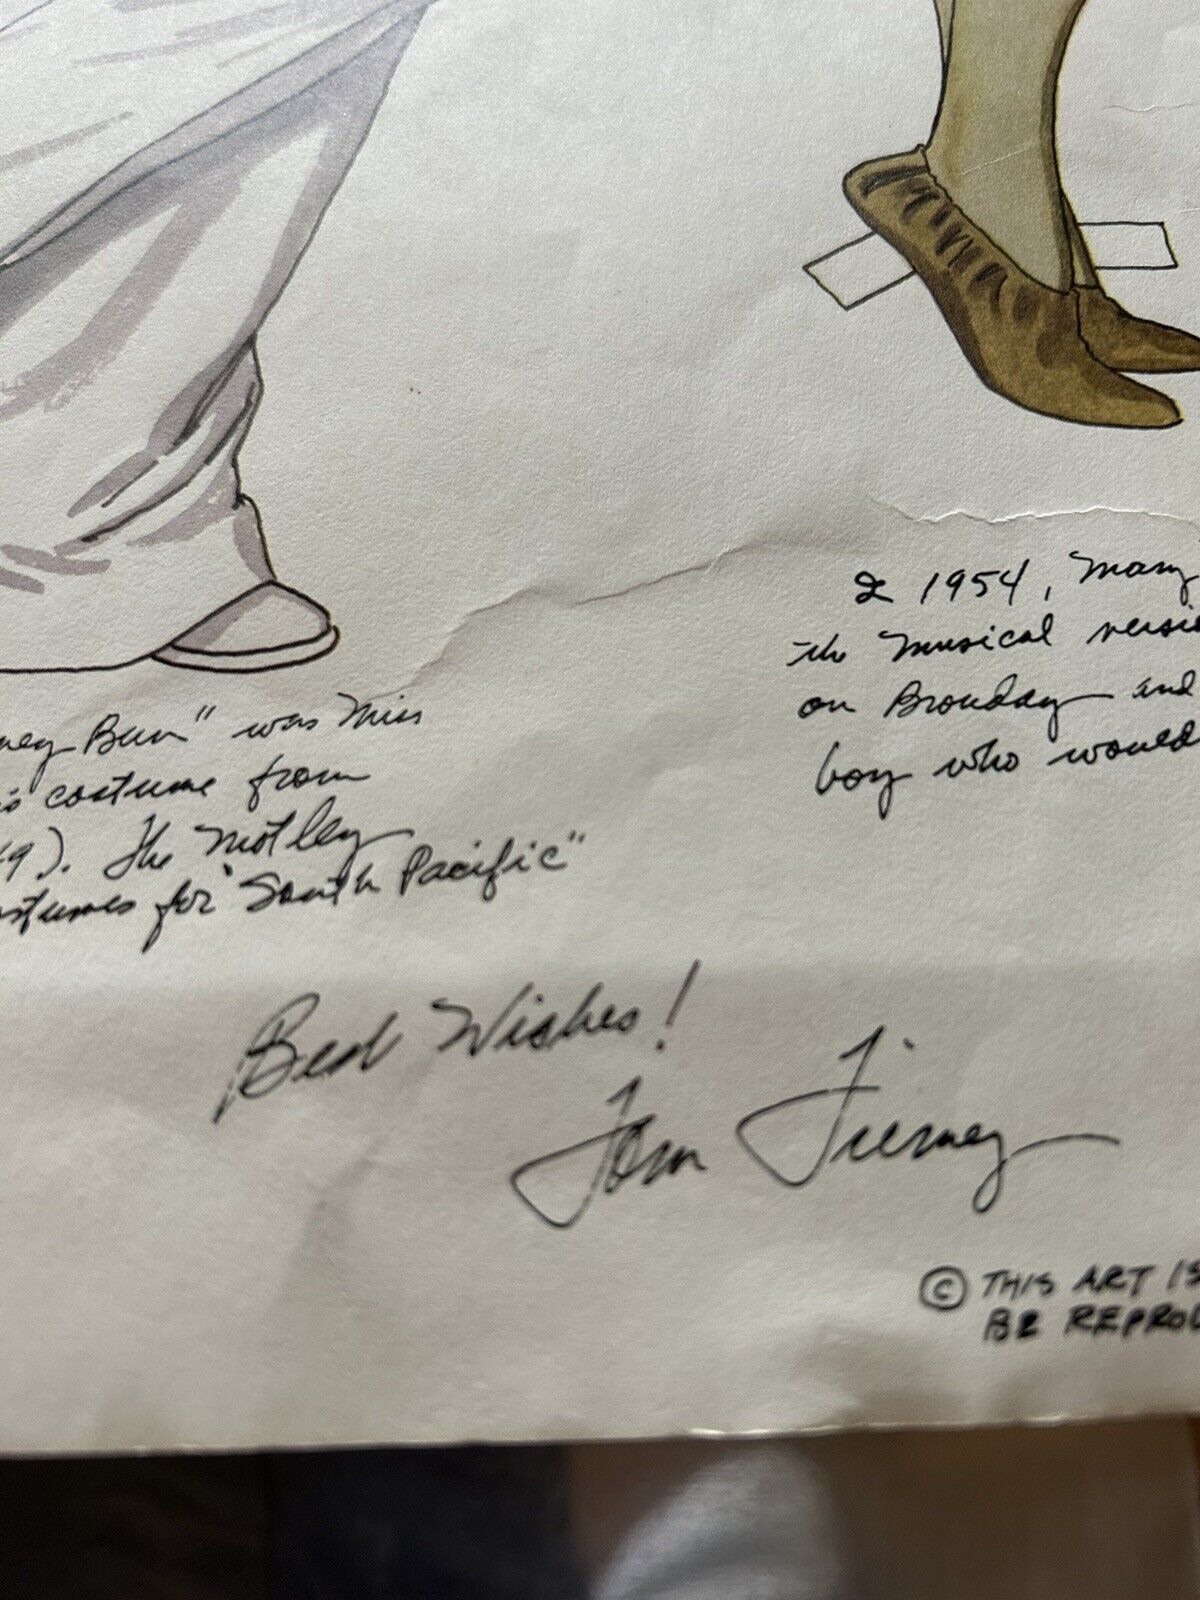 ney Bun" was Miss
's costume from
49). The Motley
ostumes for "South Pacific"
In 1954, Mary
the musical versio
on Broadway and
boy who would
Best Wishes!
Tom Tierney
© THIS ART IS
BE REPROD